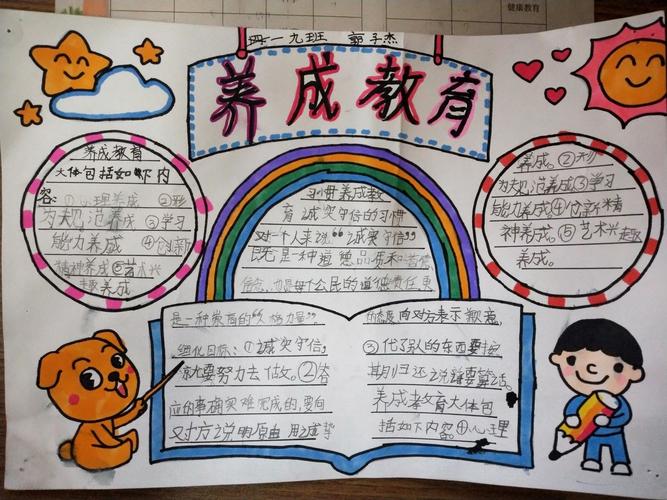 健康教育
四一九班 郭子杰
养成教育
养成教育
大体包括如下内
容:①心理养成 ②形
为规范养成 ③学习
能力养成 ④创新
精神养成⑤艺术兴
趣养成
习惯养成教
育诚实守信的习惯
对一个人来说“诚实守信”
既是一种道德品质和
也是每个公民的道德责任更
是一种崇高的“人格力量”。
细化目标:①诚实守信,
就要努力去做。②答
应的事确实难完成的,要向
对方说明原由 用诚挚
的态度向对方表示歉意,
③ 代了别的东西要按
期归还 说话要算话。
养成孝教育大体包
括如下内容。①心理
养成。②形
为规范养成③学习
能力养成④创新精
神养成。⑤艺术兴趣
养成。